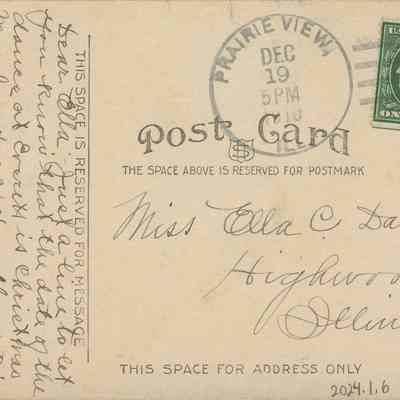 PRAIRIE VIEW,
DEC
19
5 PM
ILL.
Post Card
THE SPACE ABOVE IS RESERVED FOR POSTMARK
THIS SPACE IS RESERVED FOR MESSAGE
Dear Ella Just a line to let
you know that the date of the
dance at Everits is Christmas
Miss Ella C. Da
Highwoo
Illin
THIS SPACE FOR ADDRESS ONLY
2024.1.6